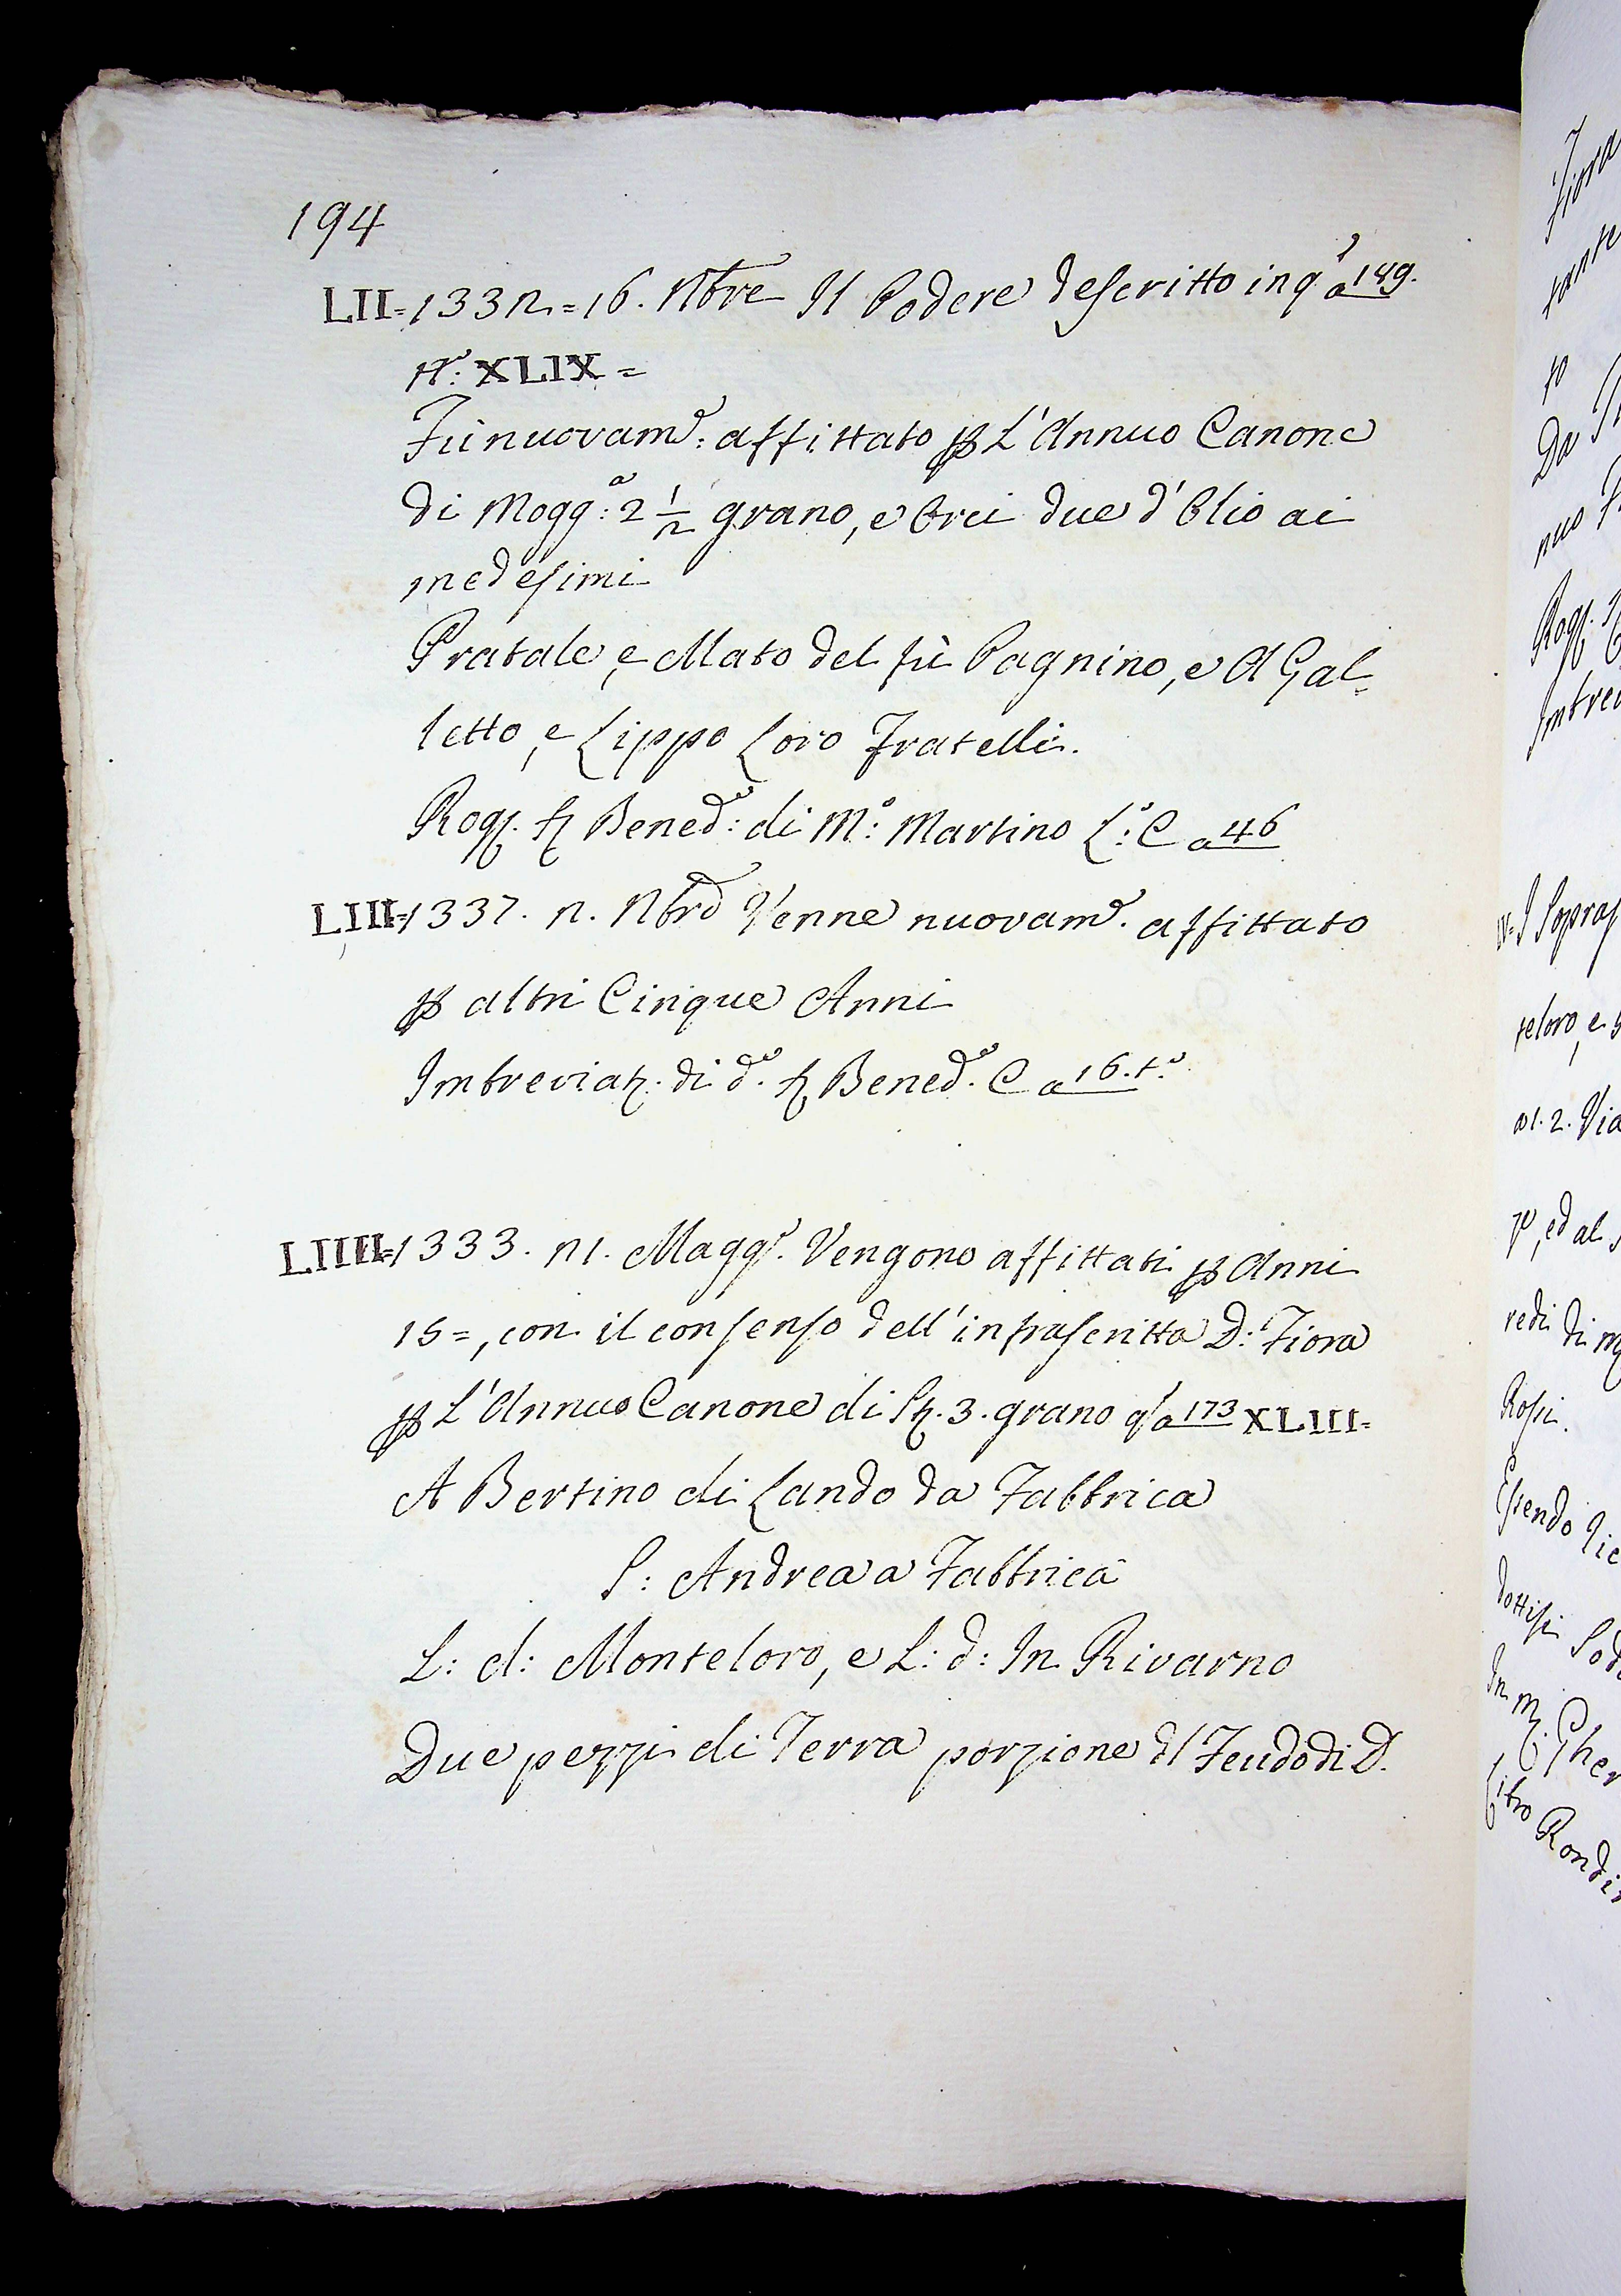 194
LII = 1332 = 16. Nbre Il Podere descritto in qto a 189.
N°: XLIX =
Fù nuovam.e: affittato p L'Annuo Canone
di Mogg.a: 2 1/2 grano, e Orci due d'Olio ai
medesimi
Pratale, e Mato del fù Pagnino, e A Gal-
letto, e Lippo Loro Fratelli.
Rog. Bened.o: di M.o: Martino L.o: C a 46
LIII = 1337. 2. Nbre Venne nuovam.e. affittato
p altri Cinque Anni
Imbreviaz. di d.o. Bened.o. C a 16. t.o
LIIII = 1333. 21. Magg.o. Vengono affittati p Anni
15 =, con il consenso dell'infrascritta D: Fiora
p L'Annuo Canone di St. 3. grano qto a 173 XLIII =
A Bertino di Lando da Fabbrica
S: Andrea a Fabbrica
L: d: Monteloro, e L: d: In Rivarno
Due pezzi di Terra porzione dl Feudo di D.
Fiora
tante
Da
nuo
Rog.
Imbrev
I Sopras
teloro, e
a 1. 2. Via
ed al
redi di
Rossi.
Essendo
dottisi Sod
In
Libro Rondi